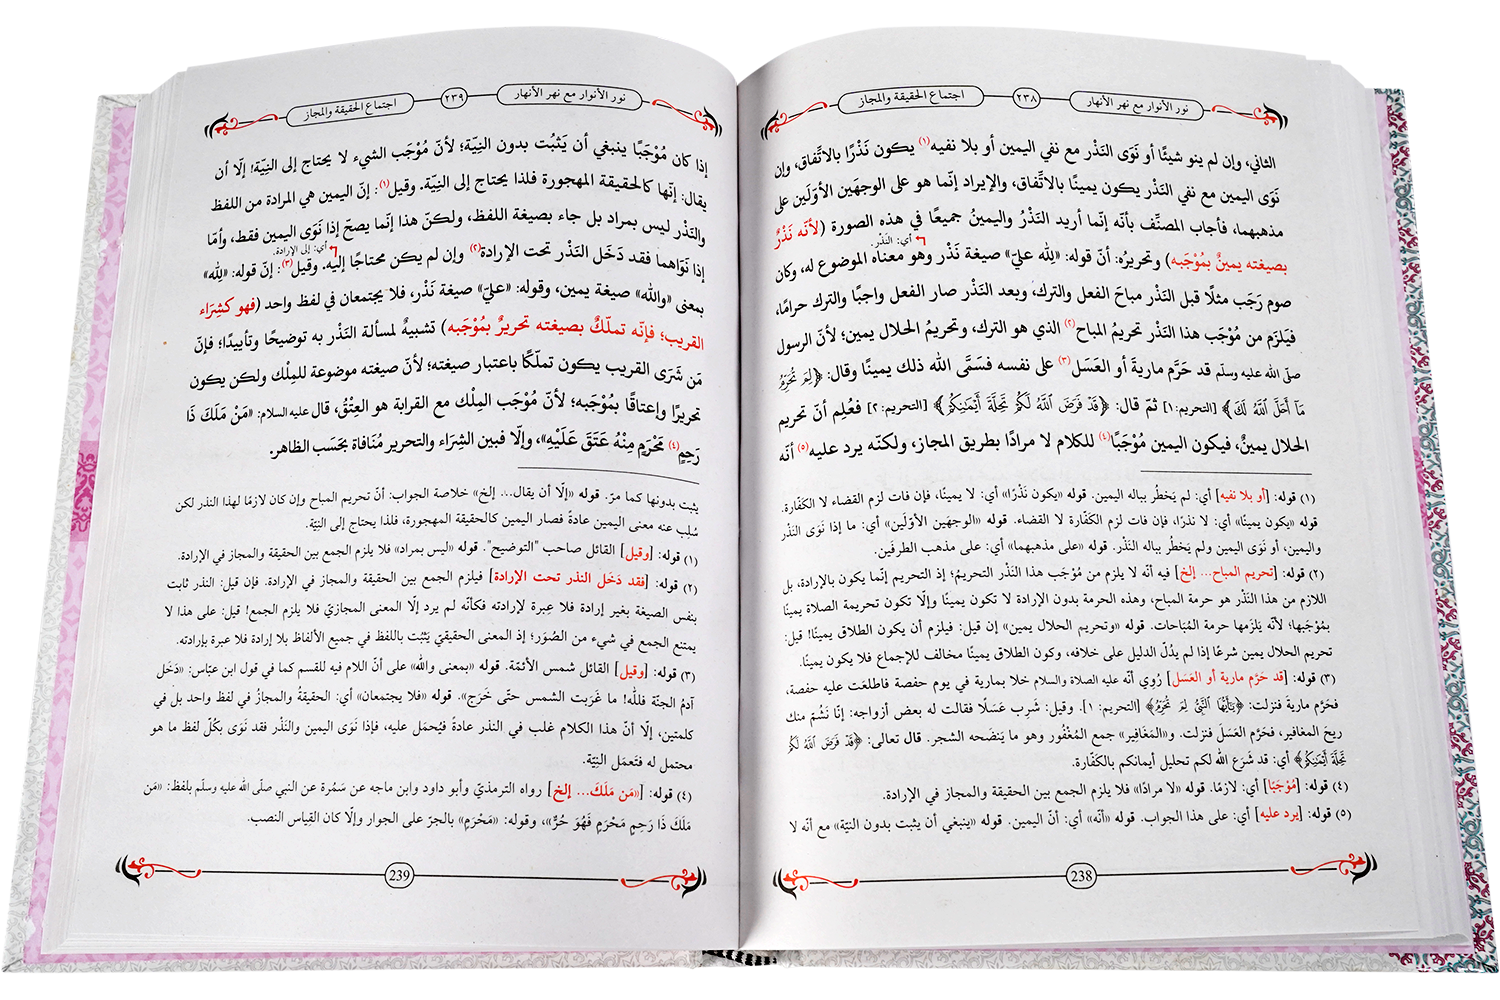 نور الأنوار مع نهر الأنهار ٢٣٨ اجتماع الحقيقة والمجاز
الثاني، وإن لم ينو شيئًا أو نَوَى النَذْر مع نفي اليمين أو بلا نفيه(١) يكون نَذْرًا بالاتِّفاق، وإن
نَوَى اليمين مع نفي النَذْر يكون يمينًا بالاتِّفاق، والإيراد إنّما هو على الوجهَين الأوّلَين على
مذهبهما، فأجاب المصنِّف بأنّه إنّما أريد النَذْرُ واليمينُ جميعًا في هذه الصورة (لأنّه نَذْرٌ
أي: النَذْر.
بصيغته يمينٌ بمُوْجَبه) وتحريرُه: أنّ قوله: «لِله عليّ» صيغة نَذْر وهو معناه الموضوع له، وكان
صوم رَجَب مثلًا قبل النَذْر مباحَ الفعل والترك، وبعد النَذْر صار الفعل واجبًا والترك حرامًا،
فيَلزَم من مُوْجَب هذا النَذْر تحريمُ المباح(٢) الذي هو الترك، وتحريمُ الحلال يمين؛ لأنّ الرسول
صلّى الله عليه وسلّم قد حَرَّم ماريةَ أو العَسَل(٣) على نفسه فسَمَّى الله ذلك يمينًا وقال: ﴿لِمَ تُحَرِّمُ
مَآ أَحَلَّ ٱللَّهُ لَكَ﴾ [التحريم:١] ثمّ قال: ﴿قَدْ فَرَضَ ٱللَّهُ لَكُمْ تَحِلَّةَ أَيْمَٰنِكُمْ﴾ [التحريم:٢] فعُلِم أنّ تحريم
الحلال يمينٌ، فيكون اليمين مُوْجَبًا(٤) للكلام لا مرادًا بطريق المجاز، ولكنّه يرد عليه(٥) أنّه
(١) قوله: [أو بلا نفيه] أي: لم يَخطُر بباله اليمين. قوله «يكون نَذْرًا» أي: لا يمينًا، فإن فات لزم القضاء لا الكفّارة.
قوله «يكون يمينًا» أي: لا نذرًا، فإن فات لزم الكفّارة لا القضاء. قوله «الوجهين الأوّلَين» أي: ما إذا نَوَى النَذْر
واليمين، أو نَوَى اليمين ولم يَخطُر بباله النَذْر. قوله «على مذهبهما» أي: على مذهب الطرفَين.
(٢) قوله: [تحريم المباح... إلخ] فيه أنّه لا يلزم من مُوْجَب هذا النَذْر التحريمُ؛ إذ التحريم إنّما يكون بالإرادة، بل
اللازم من هذا النَذْر هو حرمة المباح، وهذه الحرمة بدون الإرادة لا تكون يمينًا وإلّا تكون تحريمة الصلاة يمينًا
بمُوْجَبها؛ لأنّه يَلزَمها حرمة المُبَاحات. قوله «وتحريم الحلال يمين» إن قيل: فيلزم أن يكون الطلاق يمينًا! قيل:
تحريم الحلال يمين شرعًا إذا لم يدُلّ الدليل على خلافه، وكون الطلاق يمينًا مخالف للإجماع فلا يكون يمينًا.
(٣) قوله: [قد حَرَّم مارية أو العَسَل] رُوِي أنّه عليه الصلاة والسلام خلا بمارية في يوم حفصة فاطلعَت عليه حفصة،
فحَرَّم ماريةَ فنزلت: ﴿يَٰٓأَيُّهَا ٱلنَّبِيُّ لِمَ تُحَرِّمُ﴾ [التحريم: ١]. وقيل: شَرِب عَسَلًا فقالت له بعض أزواجه: إنّا نَشُمّ منك
ريح المغافير، فحَرَّم العَسَل فنزلت. و«المَغَافِير» جمع المُغْفُور وهو ما يَنضَحه الشجر. قال تعالى: ﴿قَدْ فَرَضَ ٱللَّهُ لَكُمْ
تَحِلَّةَ أَيْمَٰنِكُمْ﴾ أي: قد شَرَع الله لكم تحليل أيمانكم بالكفّارة.
(٤) قوله: [مُوْجَبًا] أي: لازمًا. قوله «لا مرادًا» فلا يلزم الجمع بين الحقيقة والمجاز في الإرادة.
(٥) قوله: [يرد عليه] أي: على هذا الجواب. قوله «أنّه» أي: أنّ اليمين. قوله «ينبغي أن يثبت بدون النيّة» مع أنّه لا
238
نور الأنوار مع نهر الأنهار ٢٣٩ اجتماع الحقيقة والمجاز
إذا كان مُوْجَبًا ينبغي أن يَثبُت بدون النِيّة؛ لأنّ مُوْجَب الشيء لا يحتاج إلى النِيّة! إلّا أن
يقال: إنّها كالحقيقة المهجورة فلذا يحتاج إلى النِيّة. وقيل(١): إنّ اليمين هي المرادة من اللفظ
والنَذْر ليس بمراد بل جاء بصيغة اللفظ، ولكنّ هذا إنّما يصحّ إذا نَوَى اليمين فقط، وأمّا
إذا نَوَاهما فقد دَخَل النَذْر تحت الإرادة(٢) وإن لم يكن محتاجًا إليه. وقيل(٣): إنّ قوله: «لِله»
أي: إلى الإرادة.
بمعنى «والله» صيغة يمين، وقوله: «عليّ» صيغة نَذْر، فلا يجتمعان في لفظ واحد (فهو كشِرَاء
القريب؛ فإنّه تملّكٌ بصيغته تحريرٌ بمُوْجَبه) تشبيهٌ لمسألة النَذْر به توضيحًا وتأييدًا؛ فإنّ
مَن شَرَى القريب يكون تملّكًا باعتبار صيغته؛ لأنّ صيغته موضوعة للمِلْك ولكن يكون
تحريرًا وإعتاقًا بمُوْجَبه؛ لأنّ مُوْجَب المِلْك مع القرابة هو العِتْقُ، قال عليه السلام: «مَنْ مَلَكَ ذَا
رَحِمٍ(٤) مَحْرَمٍ مِنْهُ عَتَقَ عَلَيْهِ»، وإلّا فبين الشِرَاء والتحرير مُنَافاة بحَسَب الظاهر.
يثبت بدونها كما مرّ. قوله «إلّا أن يقال... إلخ» خلاصة الجواب: أنّ تحريم المباح وإن كان لازمًا لهذا النذر لكن
سُلِب عنه معنى اليمين عادةً فصار اليمين كالحقيقة المهجورة، فلذا يحتاج إلى النيّة.
(١) قوله: [وقيل] القائل صاحب "التوضيح". قوله «ليس بمراد» فلا يلزم الجمع بين الحقيقة والمجاز في الإرادة.
(٢) قوله: [فقد دَخَل النذر تحت الإرادة] فيلزم الجمع بين الحقيقة والمجاز في الإرادة. فإن قيل: النذر ثابت
بنفس الصيغة بغير إرادة فلا عِبرة لإرادته فكأنّه لم يرد إلّا المعنى المجازيّ فلا يلزم الجمع! قيل: على هذا لا
يمتنع الجمع في شيء من الصُوَر؛ إذ المعنى الحقيقيّ يَثبُت باللفظ في جميع الألفاظ بلا إرادة فلا عبرة بإرادته.
(٣) قوله: [وقيل] القائل شمس الأئمّة. قوله «بمعنى والله» على أنّ اللام فيه للقسم كما في قول ابن عبّاس: «دَخَل
آدمُ الجنّة فللّه! ما غَرَبت الشمس حتّى خَرَج». قوله «فلا يجتمعان» أي: الحقيقةُ والمجازُ في لفظ واحد بل في
كلمتين، إلّا أنّ هذا الكلام غلب في النذر عادةً فيُحمَل عليه، فإذا نَوَى اليمين والنَذْر فقد نَوَى بكلّ لفظ ما هو
محتمل له فتَعمَل النِيّة.
(٤) قوله: [«مَن مَلَكَ... إلخ] رواه الترمذيّ وأبو داود وابن ماجه عن سَمُرة عن النبي صلّى الله عليه وسلّم بلفظ: «مَن
مَلَكَ ذَا رَحِمٍ مَحْرَمٍ فَهُوَ حُرٌّ»، وقوله: «مَحْرَمٍ» بالجرّ على الجوار وإلّا كان القِياس النصب.
239